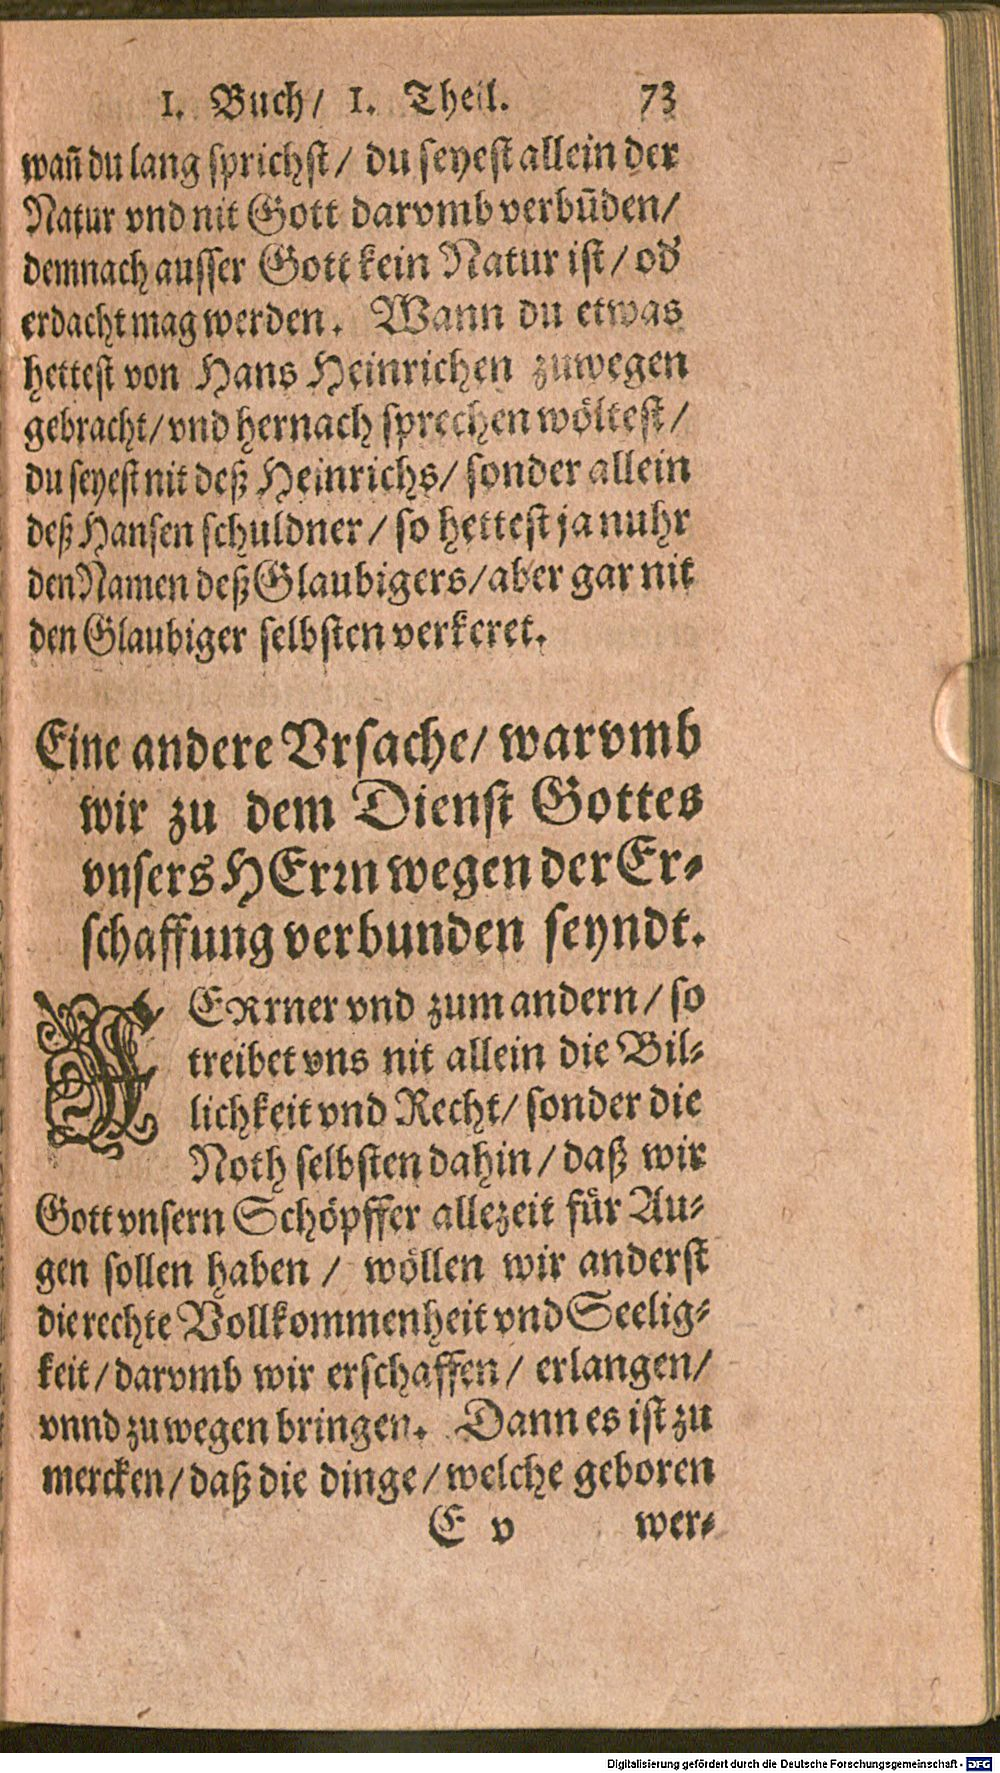 1. Buch/ 1. Theil. 73
wañ du lang sprichst/ du seyest allein der
Natur vnd nit Gott darvmb verbūden/
demnach ausser Gott kein Natur ist/ od'
erdacht mag werden. Wann du etwas
hettest von Hans Heinrichen zuwegen
gebracht/ vnd hernach sprechen wöltest/
du seyest nit deß Heinrichs/ sonder allein
deß Hansen schuldner/ so hettest ja nuhr
den Namen deß Glaubigers/ aber gar nit
den Glaubiger selbsten verkeret.
Eine andere Vrsache/ warvmb
wir zu dem Dienst Gottes
vnsers HErꝛn wegen der Er-
schaffung verbunden seyndt.
FERrner vnd zum andern/ so
treibet vns nit allein die Bil-
lichkeit vnd Recht/ sonder die
Noth selbsten dahin/ daß wir
Gott vnsern Schöpffer allezeit für Au-
gen sollen haben/ wöllen wir anderst
die rechte Vollkommenheit vnd Seelig-
keit/ darvmb wir erschaffen/ erlangen/
vnnd zu wegen bringen. Dann es ist zu
mercken/ daß die dinge/ welche geboren
E v wer-
Digitalisierung gefördert durch die Deutsche Forschungsgemeinschaft - DFG